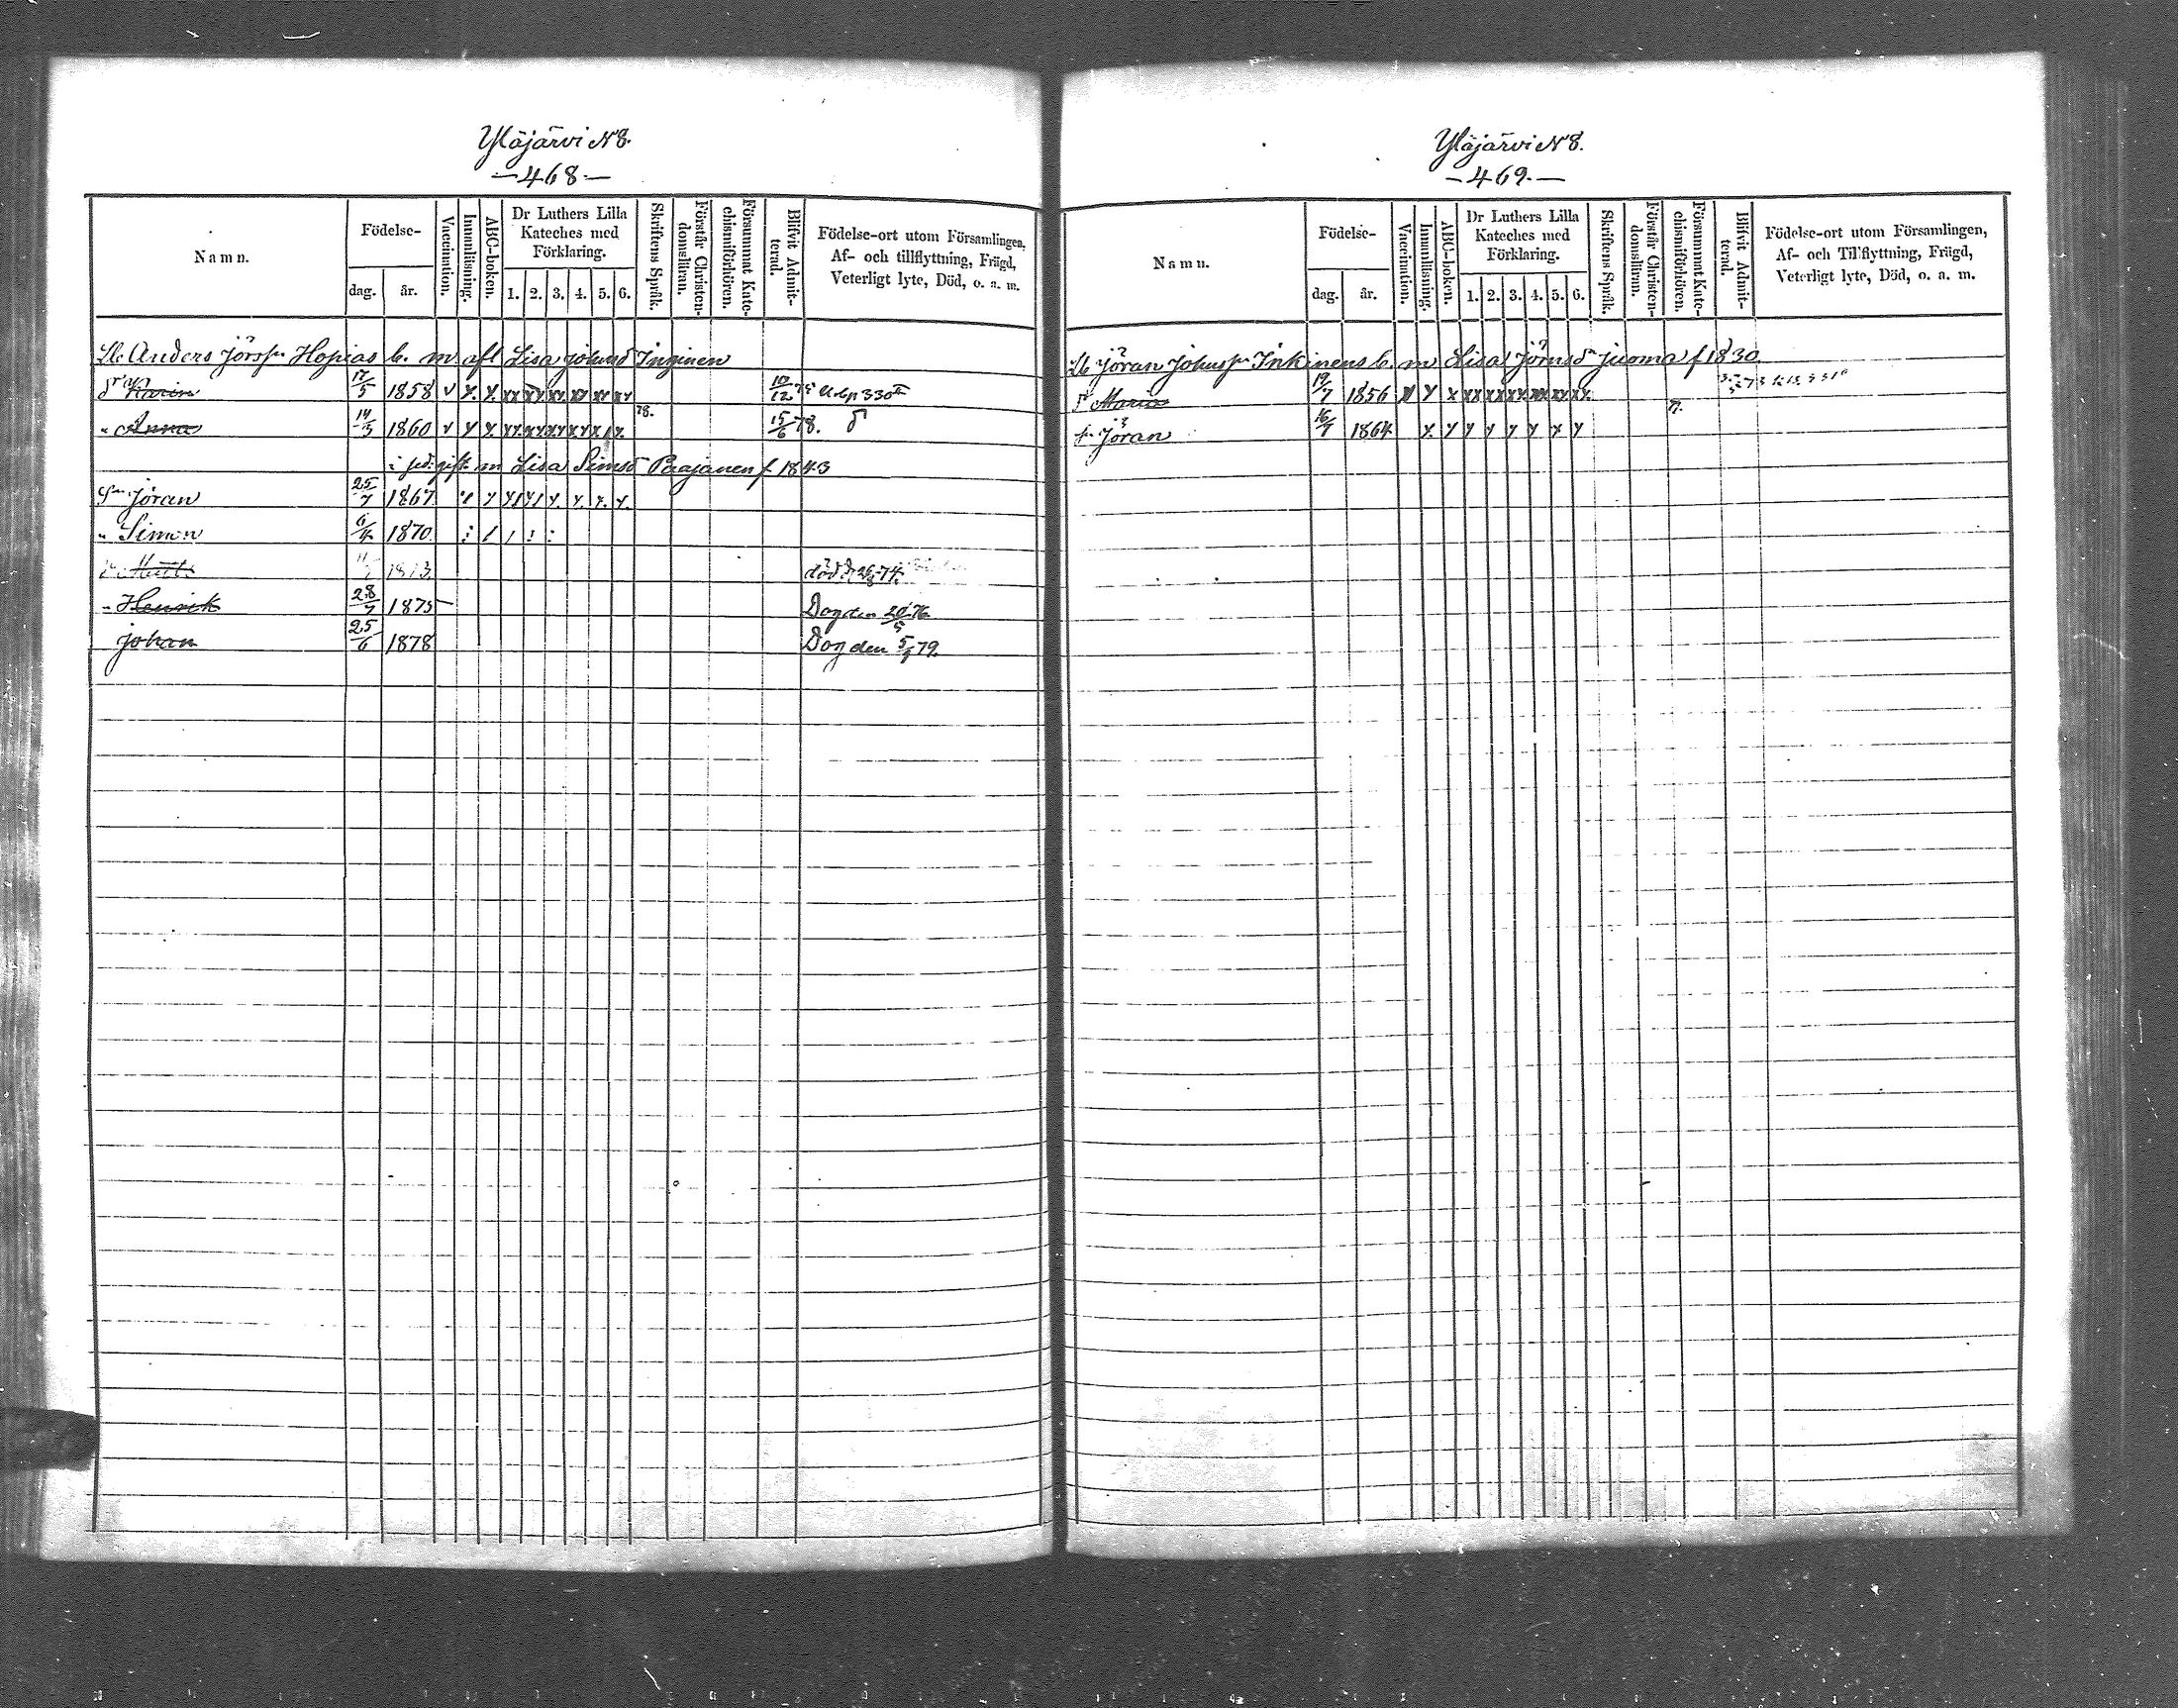 Yläjärvi N 8.
— 468 —
Namn.
Födelse-
dag.
år.
Vaccination.
Innanläsning.
ABC-boken.
Dr Luthers Lilla Kateches med Förklaring.
1. 2. 3. 4. 5. 6.
Skriftens Språk.
Förstår Christendomsläran.
Försummat Katechismiförhören.
Blifvit Admitterad.
Födelse-ort utom Församlingen, Af- och tillflyttning, Frägd, Veterligt lyte, Död, o. a. m.
Anders Hopias b. m. afl Lisa Inginen
Karin 17/5 1858 10/12
Anna 14/3 1860 78. 15/6 78.
gift m Lisa Simsd Paajanen f 1843
Jöran 25/7 1867
" Simon 6/4 1870
död 74.
" Henrik 28/7 1875 Dog den 76
Johan 25/6 1878 Dog den 79.
Yläjärvi N 8.
— 469. —
Namn.
Födelse-
dag.
år.
Vaccination.
Innanläsning.
ABC-boken.
Dr Luthers Lilla Kateches med Förklaring.
1. 2. 3. 4. 5. 6.
Skriftens Språk.
Förstår Christendomsläran.
Försummat Katechismiförhören.
Blifvit Admitterad.
Födelse-ort utom Församlingen, Af- och Tillflyttning, Frägd, Veterligt lyte, Död, o. a. m.
Jöran Inkinens b. m Lisa Juoma f 1830
Maria 19/7 1856
Jöran 16/7 1864